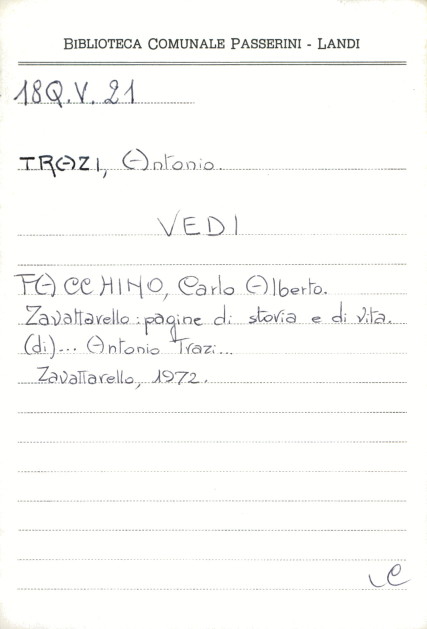 BIBLIOTECA COMUNALE PASSERINI - LANDI
18Q.V. 21
TRAZI, Antonio.
VEDI
FACCHINO, Carlo Alberto.
Zavattarello: pagine di storia e di vita.
(di)... Antonio Trazi...
Zavattarello, 1972.